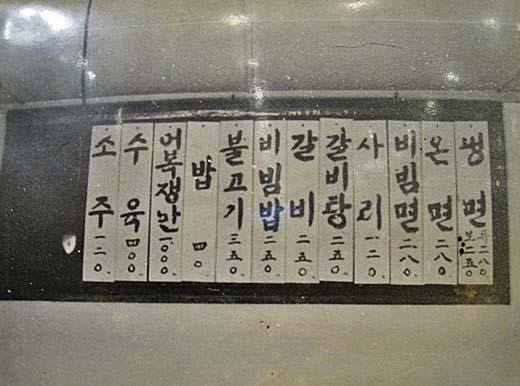 냉면 특二八〇 보二五〇
온면 二八〇
비빔면 二八〇
사리 一二〇
갈비탕 二五〇
갈비 二五〇
비빔밥 二五〇
불고기 三五〇
밥 四〇
어복쟁반
수육 四〇〇
소주 一二〇